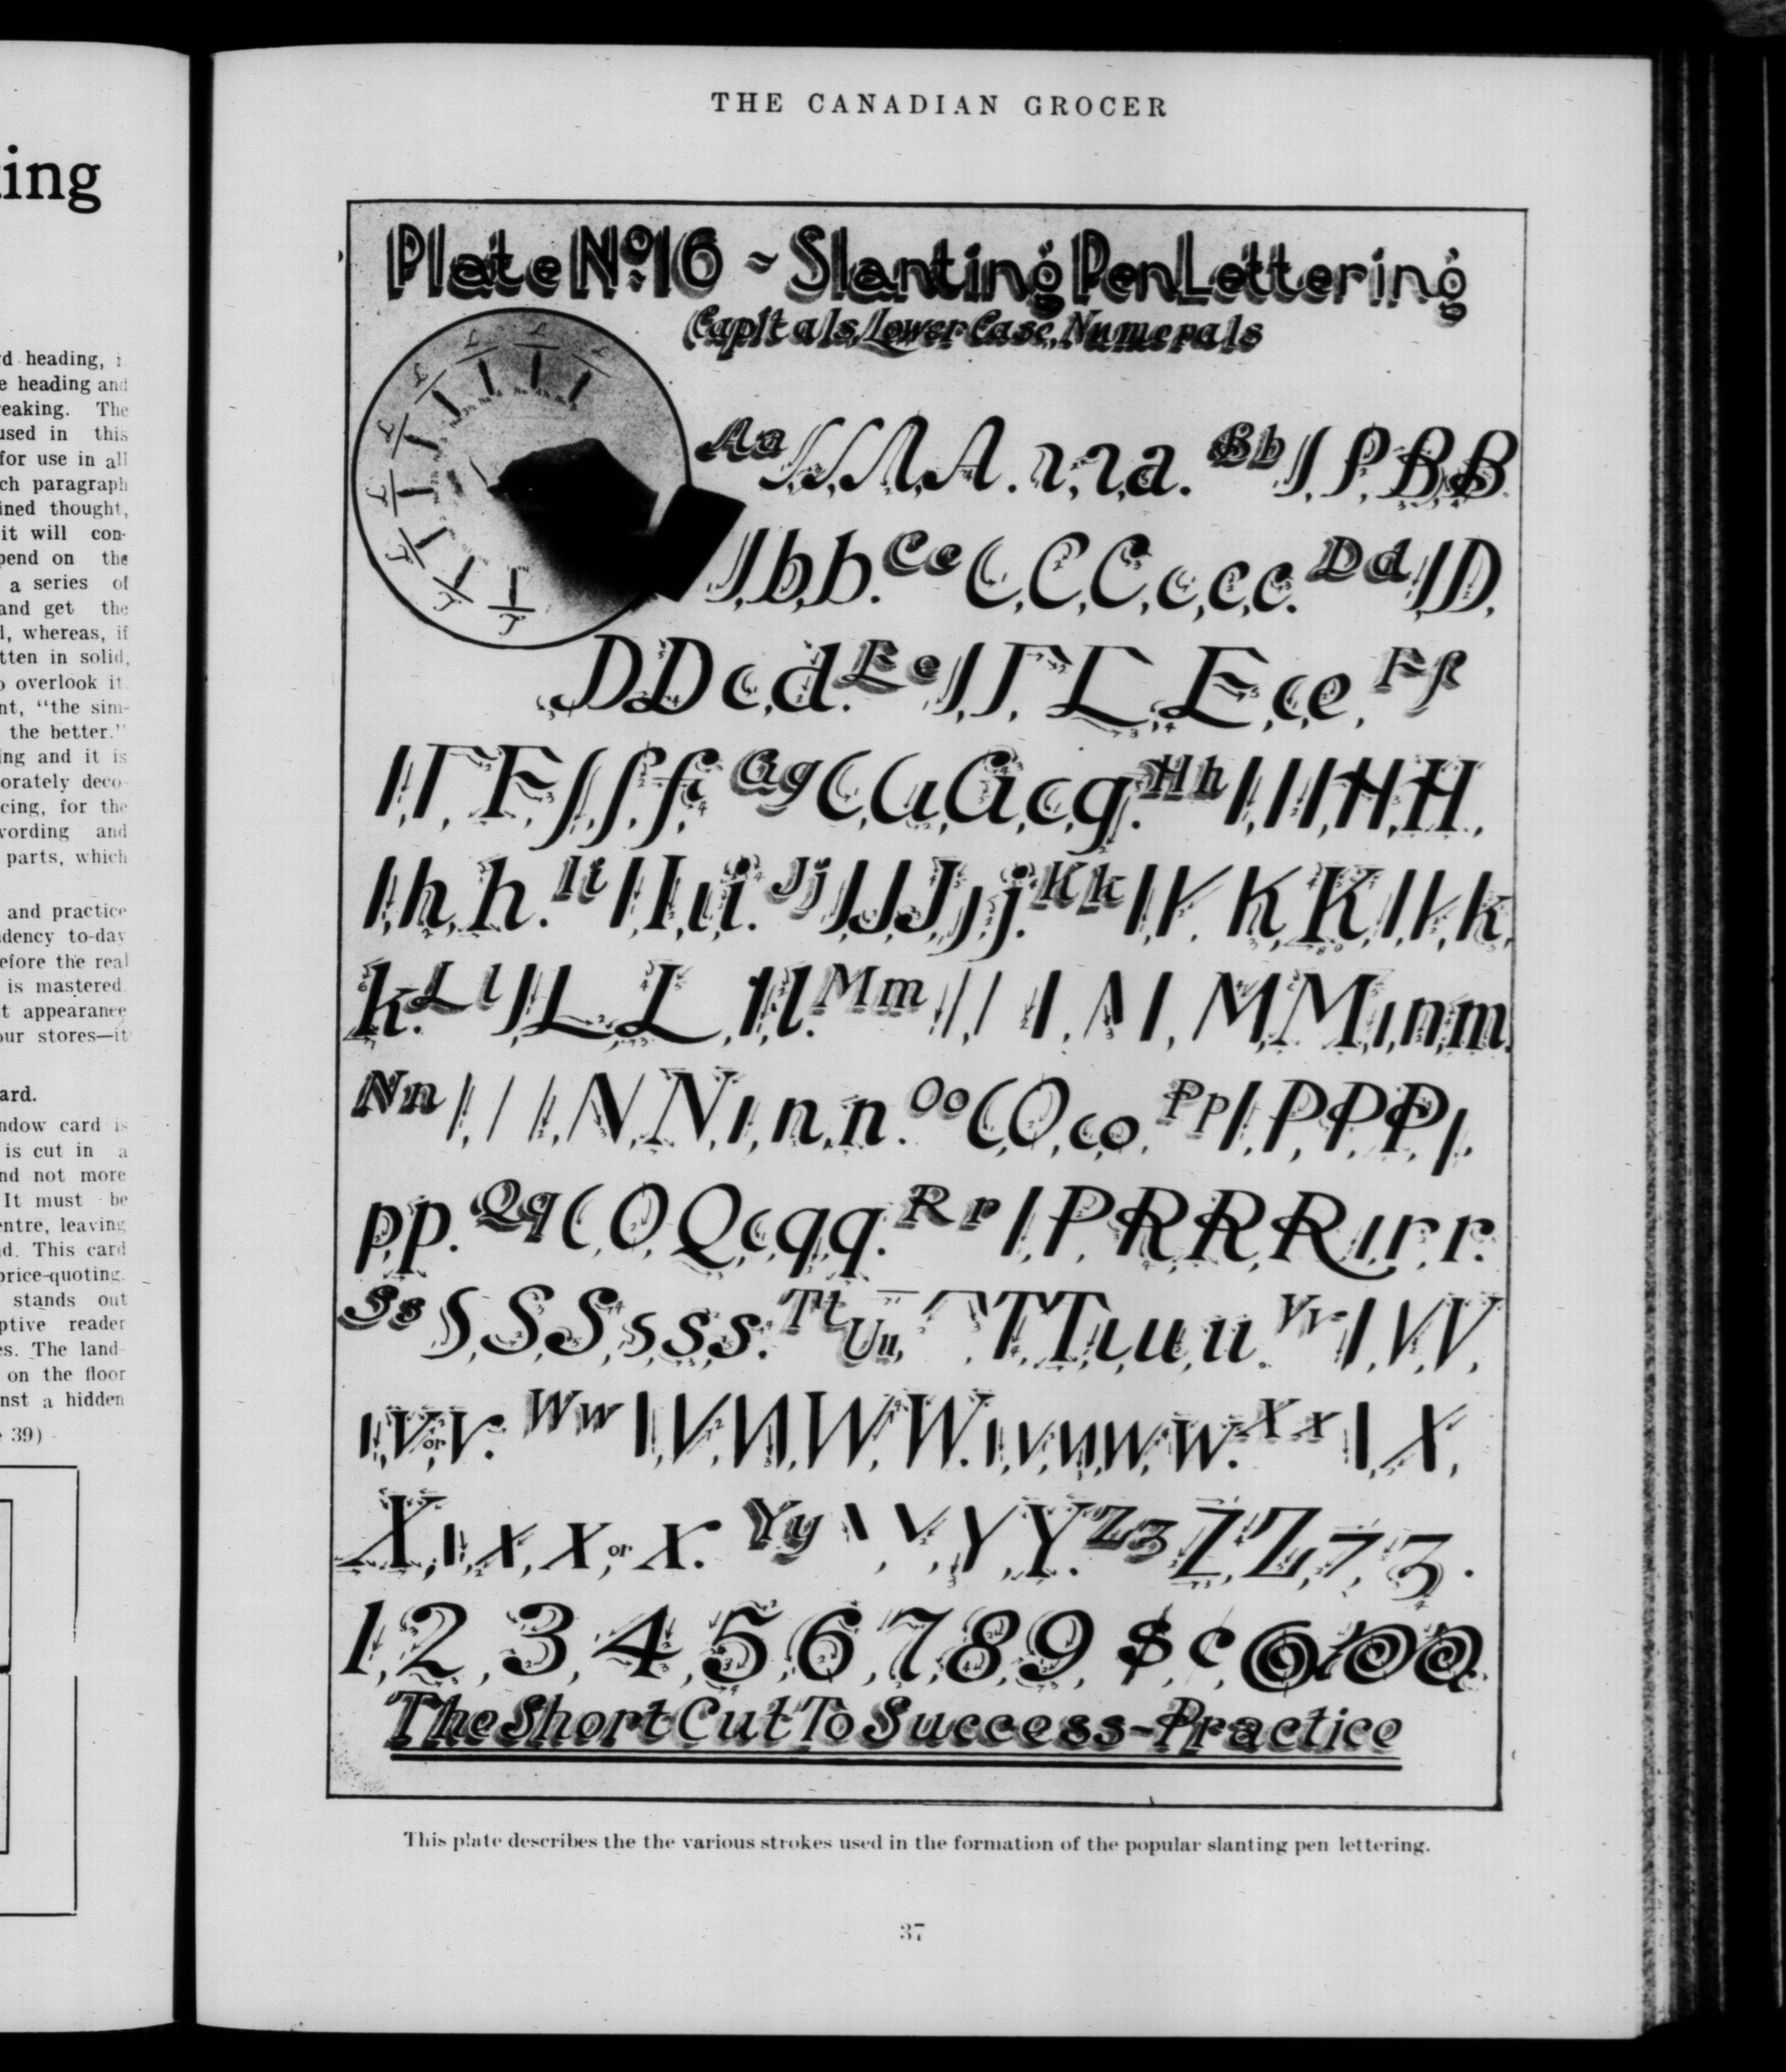 ing
THE CANADIAN GROCER
d heading, i
e heading and
eaking. The
used in this
for use in all
ch paragraph
ined thought,
it will con-
pend on the
a series of
and get the
l, whereas, if
tten in solid,
o overlook it.
nt, "the sim-
the better."
ing and it is
orately deco-
cing, for the
wording and
parts, which
and practice
dency to-day
efore the real
is mastered.
t appearance
our stores—it
ard.
ndow card is
is cut in a
nd not more
It must be
entre, leaving
d. This card
price-quoting.
stands out
ptive reader
es. The land-
on the floor
nst a hidden
39)
Plate No. 16 ~ Slanting Pen Lettering
Capitals, Lower Case, Numerals
Aa A A. a. Bb B B
b b. Cc C, C, C, c, c, c. Dd D,
D D c, d. Ee E, c e, Ff
F f Gg C, G, G, c, g. Hh H, H,
h, h. Ii I i. Jj J, J, J, j, j. Kk K, K k,
k. Ll L, L, l. Mm M, M, n, m.
Nn N, N, n, n. Oo C, O, c, o. Pp P, P, P,
p, p. Qq C, O, Q, c, q, q. Rr P, R, R, R r, r.
Ss S, S, S, s, s, s. Tt Uu, T, T, u, u. Vv V, V,
V, or V. Ww V, W, W. v, w, w. Xx X,
X, x, x, or x. Yy Y, Y. Zz Z, Z, 7, z.
1, 2, 3, 4, 5, 6, 7, 8, 9, $, ¢,
The Short Cut To Success - Practice
This plate describes the the various strokes used in the formation of the popular slanting pen lettering.
37